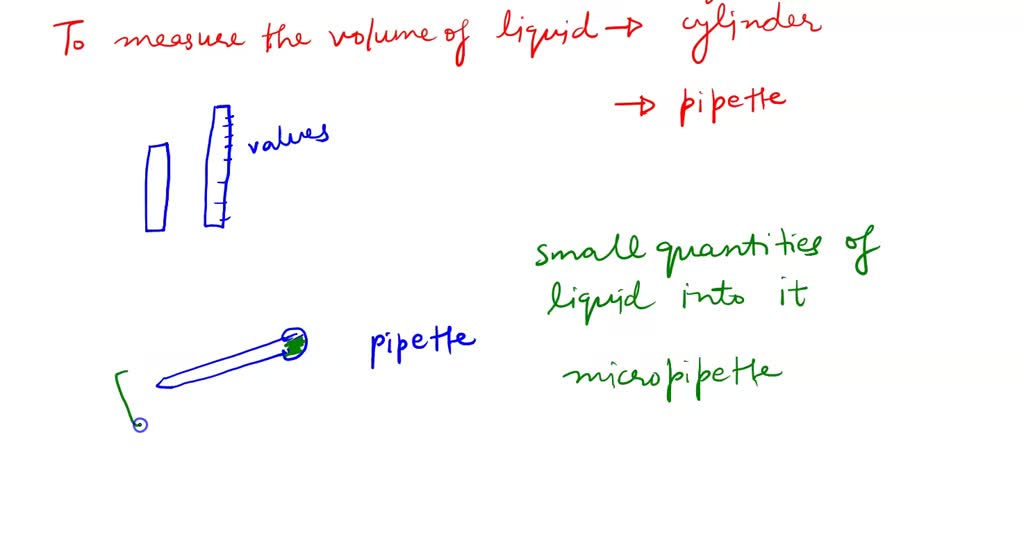 To measure the volume of liquid → cylinder
→ pipette
values
small quantities of
liquid into it
pipette
micropipette